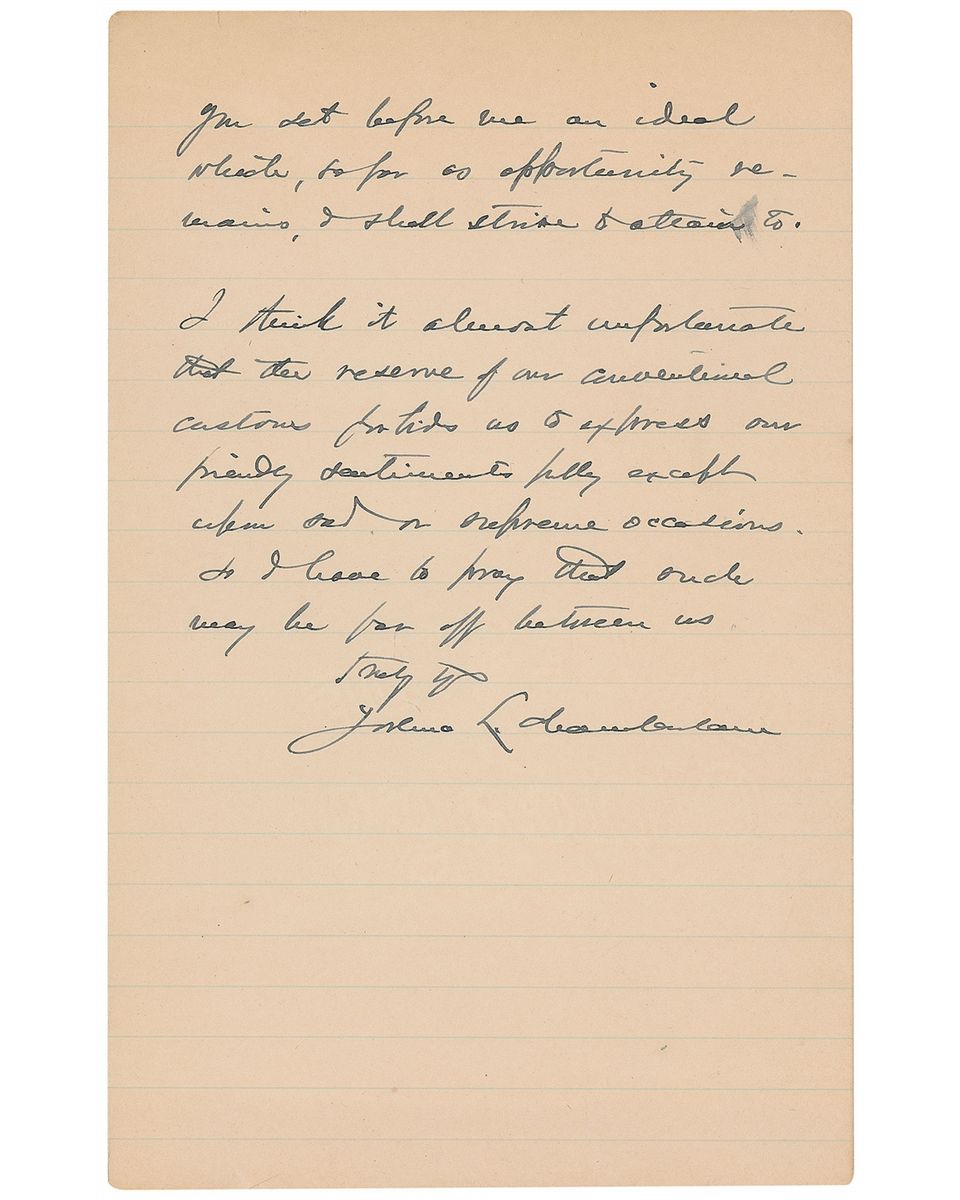 You set before me an ideal
which, so far as opportunity re-
mains, I shall strive to attain to.
I think it almost unfortunate
that the reserve of our conventional
customs forbids us to express our
friendly sentiments fully except
upon sad or supreme occasions.
So I have to pray that such
may be far off between us
Truly yrs
Joshua L. Chamberlain